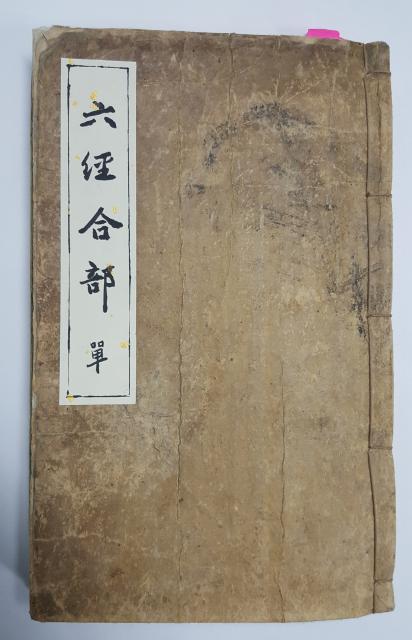 六経合部 單